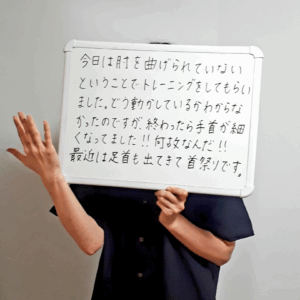 今日は肘を曲げられていない
ということでトレーニングをしてもらい
ました。どう動かしているかわからな
かったのですが、終わったら手首が細
くなってました!! 何故なんだ!!
最近は足首も出てきて首祭りです。